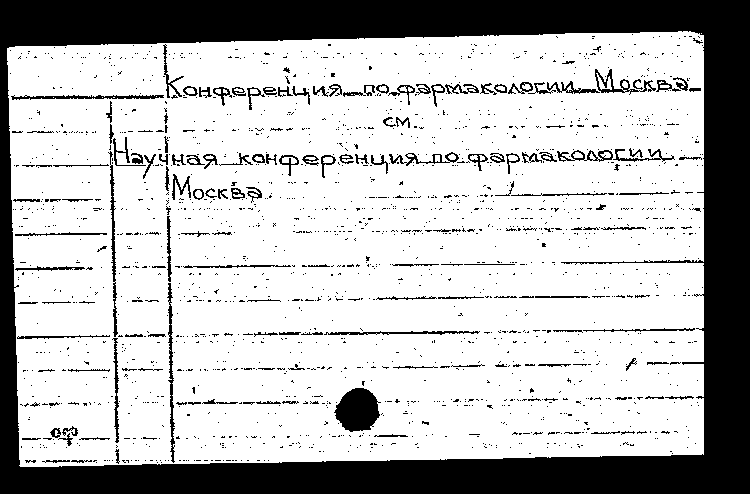 Конференция по фармакологии Москва
см.
Научная конференция по фармакологии
Москва.